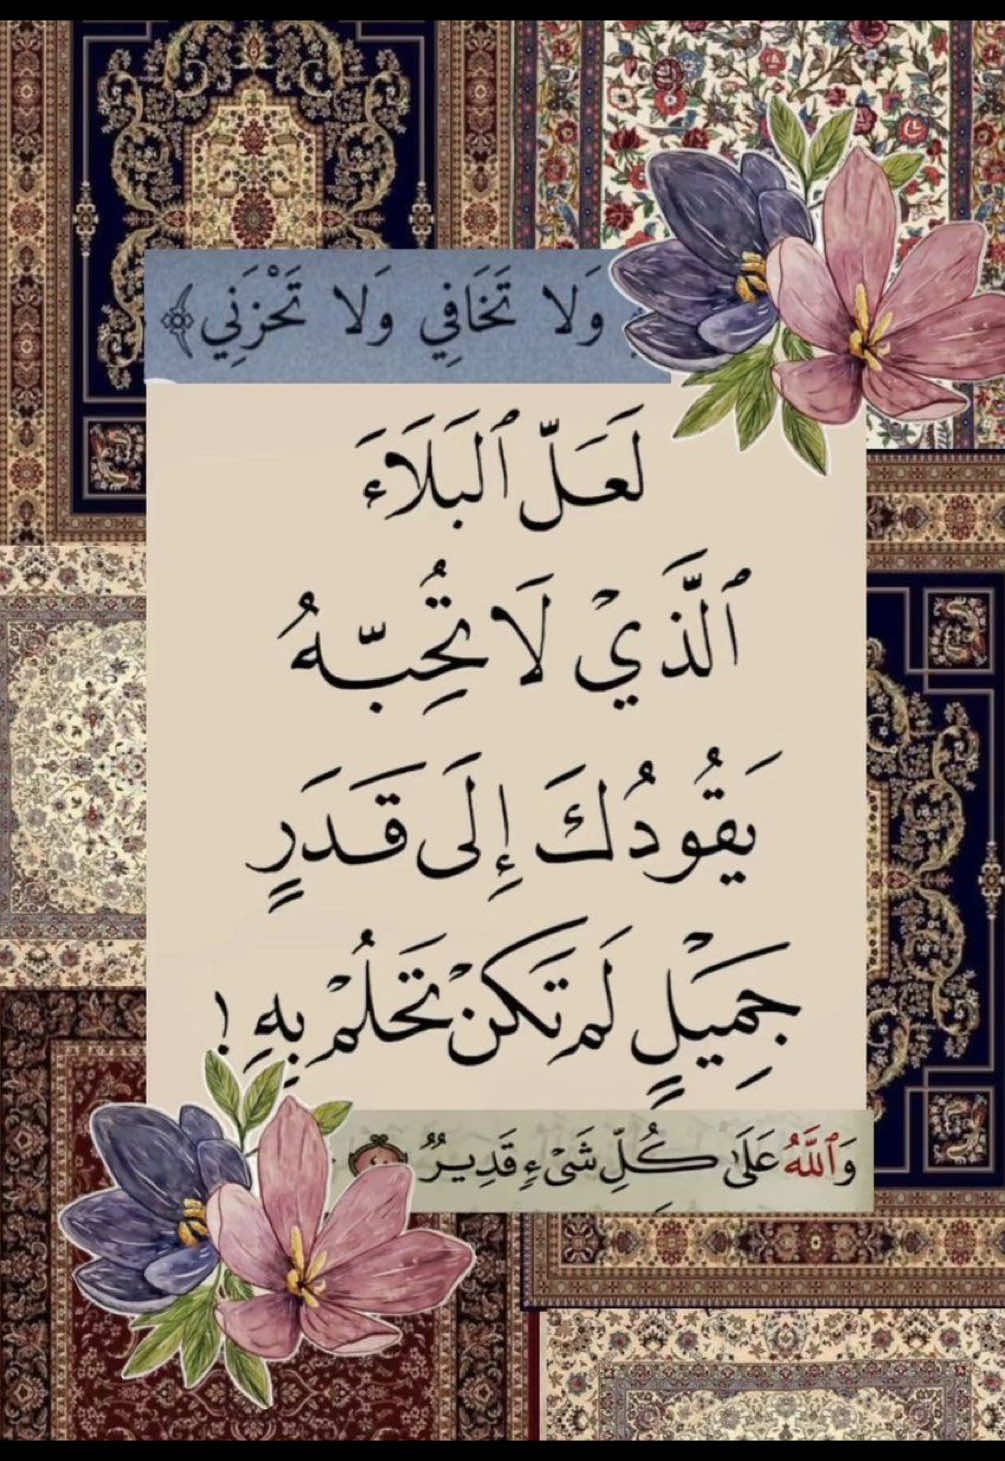 وَلا تَخَافِي وَلا تَحْزَنِي﴾
لَعَلّ ٱلبَلَاءَ
ٱلَّذَيْ لَا تُحِبّهُ
يَقُودُكَ إِلَى قَدَرٍ
جَمِيْلٍ لَم تَكنْ تَحلُمْ بِهِ !
وَٱللَّهُ عَلَىٰ كُلِّ شَىْءٍ قَدِيرٌ